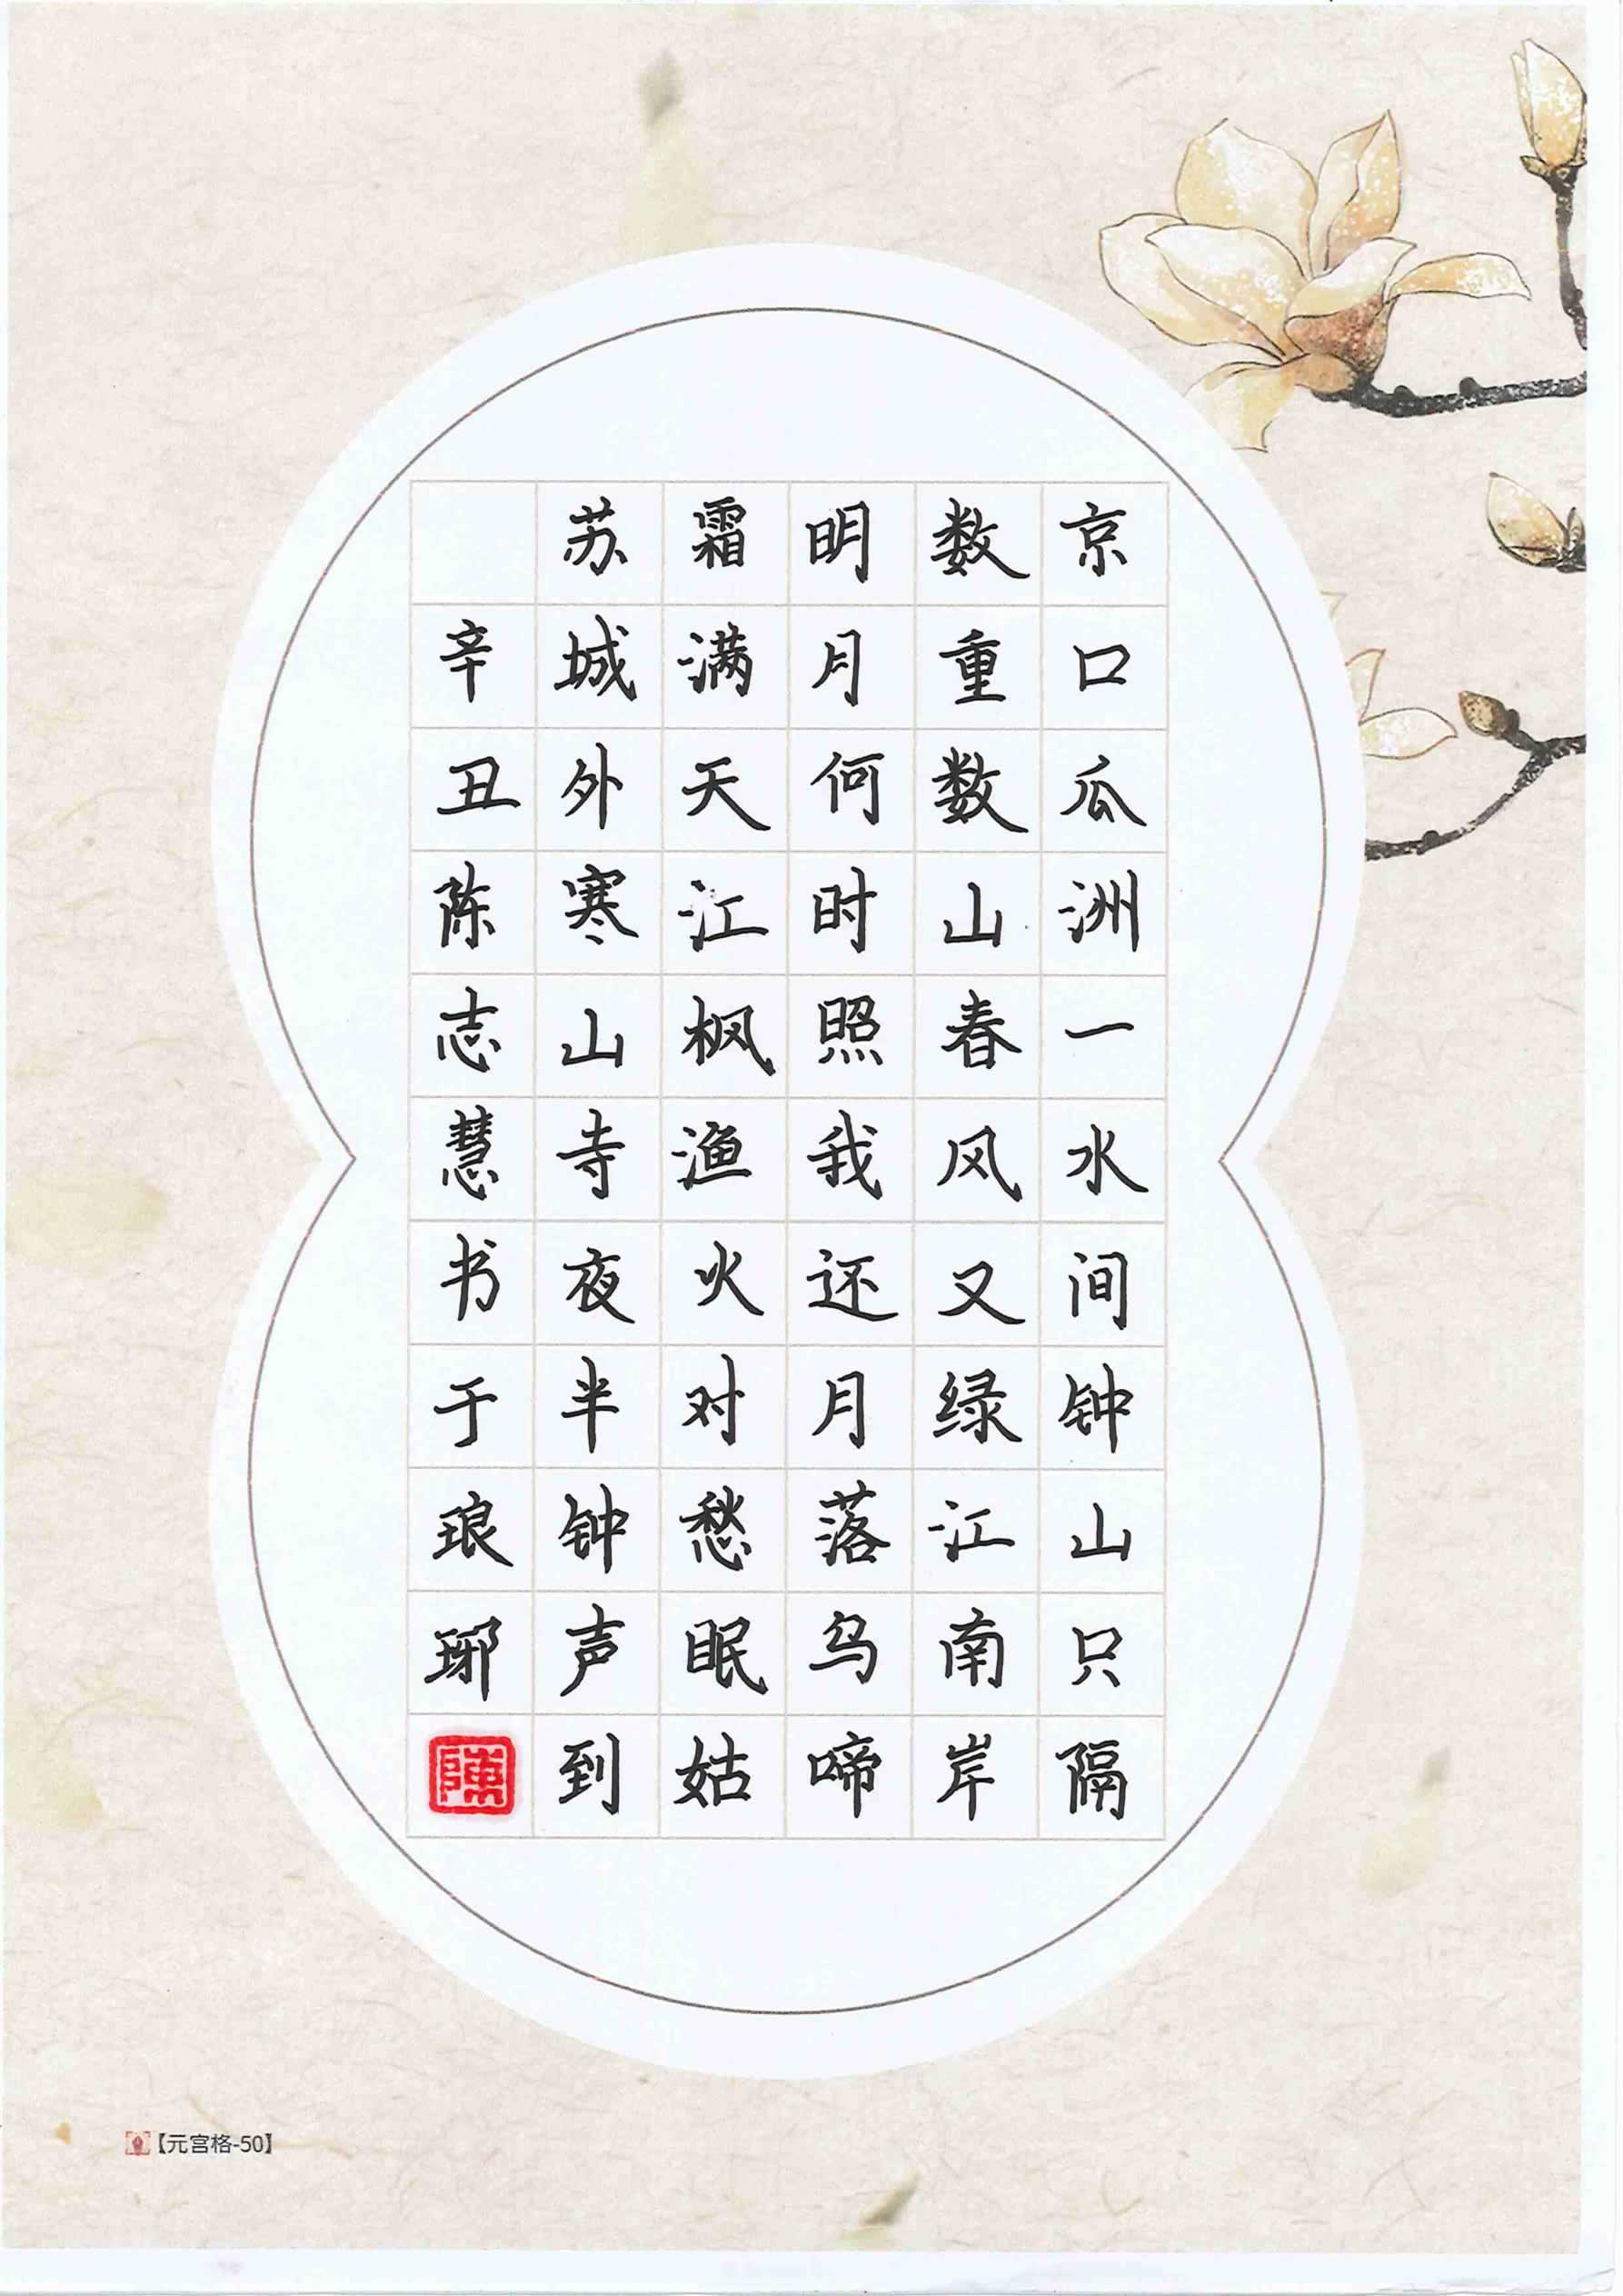 京口瓜洲一水间钟山只隔
数重数山春风又绿江南岸
明月何时照我还月落乌啼
霜满天江枫渔火对愁眠姑
苏城外寒山寺夜半钟声到
辛丑陈志慧书于琅琊
陳
【元宫格-50】